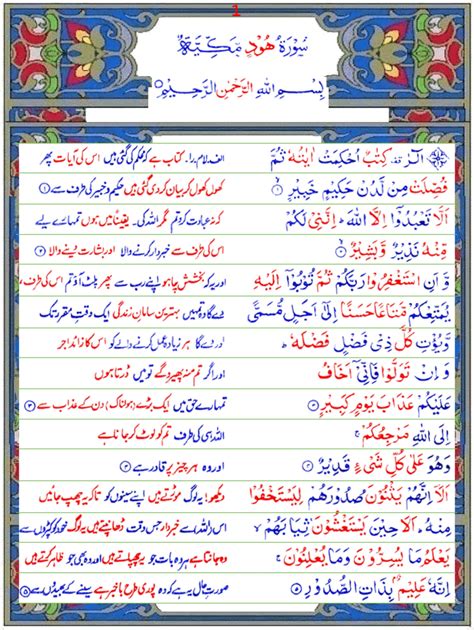 1
سُوْرَةُ هُوْدٍ مَكِّيَّةٌ
بِسْمِ اللهِ الرَّحْمٰنِ الرَّحِيْمِ
الٓرٰ قف كِتٰبٌ اُحْكِمَتْ اٰيٰتُهٗ ثُمَّ
الف۔ لام۔ را۔ کتاب ہے کہ محکم کی گئی ہیں اس کی آیات پھر
فُصِّلَتْ مِنْ لَّدُنْ حَكِيْمٍ خَبِيْرٍ ۱
کھول کھول کر بیان کر دی گئی ہیں حکیم و خبیر کی طرف سے ۱
اَلَّا تَعْبُدُوْٓا اِلَّا اللهَ ؕ اِنَّنِيْ لَكُمْ
کہ نہ عبادت کرو تم مگر اللہ کی۔ یقیناً میں ہوں تمہارے لیے
مِّنْهُ نَذِيْرٌ وَّبَشِيْرٌ ۲
اس کی طرف سے خبردار کرنے والا اور بشارت دینے والا ۲
وَّ اَنِ اسْتَغْفِرُوْا رَبَّكُمْ ثُمَّ تُوْبُوْٓا اِلَيْهِ
اور یہ کہ بخشش چاہو اپنے رب سے پھر پلٹ آؤ تم اس کی طرف،
يُمَتِّعْكُمْ مَّتَاعًا حَسَنًا اِلٰٓى اَجَلٍ مُّسَمًّى
دے گا وہ تمہیں بہترین سامانِ زندگی ایک وقتِ مقرر تک
وَّيُؤْتِ كُلَّ ذِيْ فَضْلٍ فَضْلَهٗ ؕ
اور دے گا ہر زیادہ عمل کرنے والے کو اس کا زائد اجر
وَ اِنْ تَوَلَّوْا فَاِنِّيْٓ اَخَافُ
اور اگر تم منہ پھیرو گے تو میں ڈرتا ہوں
عَلَيْكُمْ عَذَابَ يَوْمٍ كَبِيْرٍ ۳
تمہارے حق میں ایک بڑے (ہولناک) دن کے عذاب سے ۳
اِلَى اللهِ مَرْجِعُكُمْ ۚ
اللہ ہی کی طرف تم کو لوٹ کر جانا ہے
وَهُوَ عَلٰى كُلِّ شَيْءٍ قَدِيْرٌ ۴
اور وہ ہر چیز پر قادر ہے ۴
اَلَآ اِنَّهُمْ يَثْنُوْنَ صُدُوْرَهُمْ لِيَسْتَخْفُوْا
خبردار! یہ لوگ موڑتے ہیں اپنے سینوں کو تاکہ چھپ جائیں
مِنْهُ ؕ اَلَا حِيْنَ يَسْتَغْشُوْنَ ثِيَابَهُمْ ۙ
اس (اللہ) سے خبردار جس وقت ڈھانپتے ہیں یہ لوگ خود کو کپڑوں سے
يَعْلَمُ مَا يُسِرُّوْنَ وَمَا يُعْلِنُوْنَ ۚ
جانتا ہے وہ ہر بات جو یہ چھپاتے ہیں اور وہ بھی جو ظاہر کرتے ہیں
اِنَّهٗ عَلِيْمٌۢ بِذَاتِ الصُّدُوْرِ ۵
صورتِ حال یہ ہے کہ وہ پوری طرح باخبر ہے سینے کے بھیدوں سے ۵